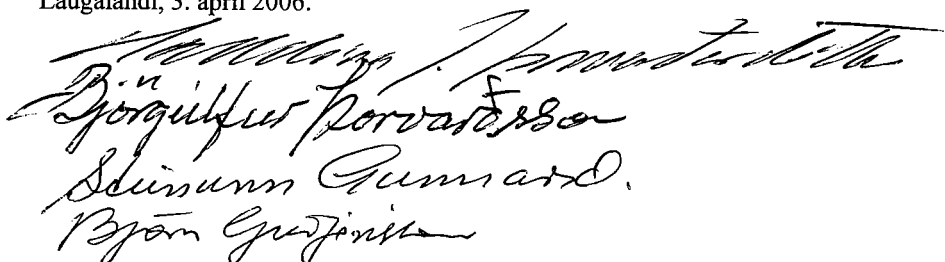 Laugalandi, 3. apríl 2006.
Björgúlfur Þorvarðsson
Steinunn Gunnarsd.
Björn Guðjónsson